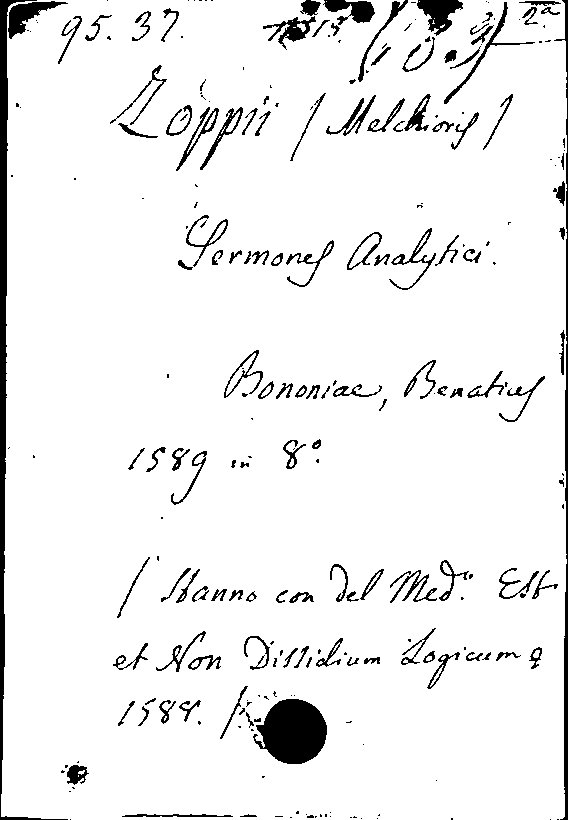 95. 37. 2ª
Zoppii / Melchioris /
Sermones Analytici.
Bononiae, Benatius
1589 in 8°.
/ Stanno con del Med.º Est
et Non Dissidium Logicum
1588. /